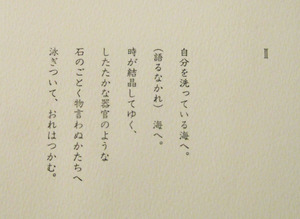 自分を洗っている海へ。
(語るなかれ) 海へ。
時が結晶してゆく、
したたかな器官のような
石のごとく物言わぬかたちへ
泳ぎついて、おれはつかむ。